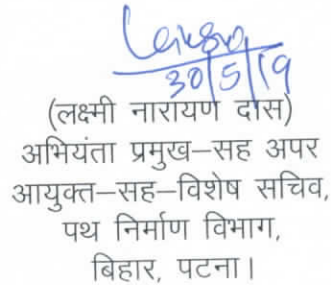 30/5/19
(लक्ष्मी नारायण दास)
अभियंता प्रमुख–सह अपर
आयुक्त–सह–विशेष सचिव,
पथ निर्माण विभाग,
बिहार, पटना।